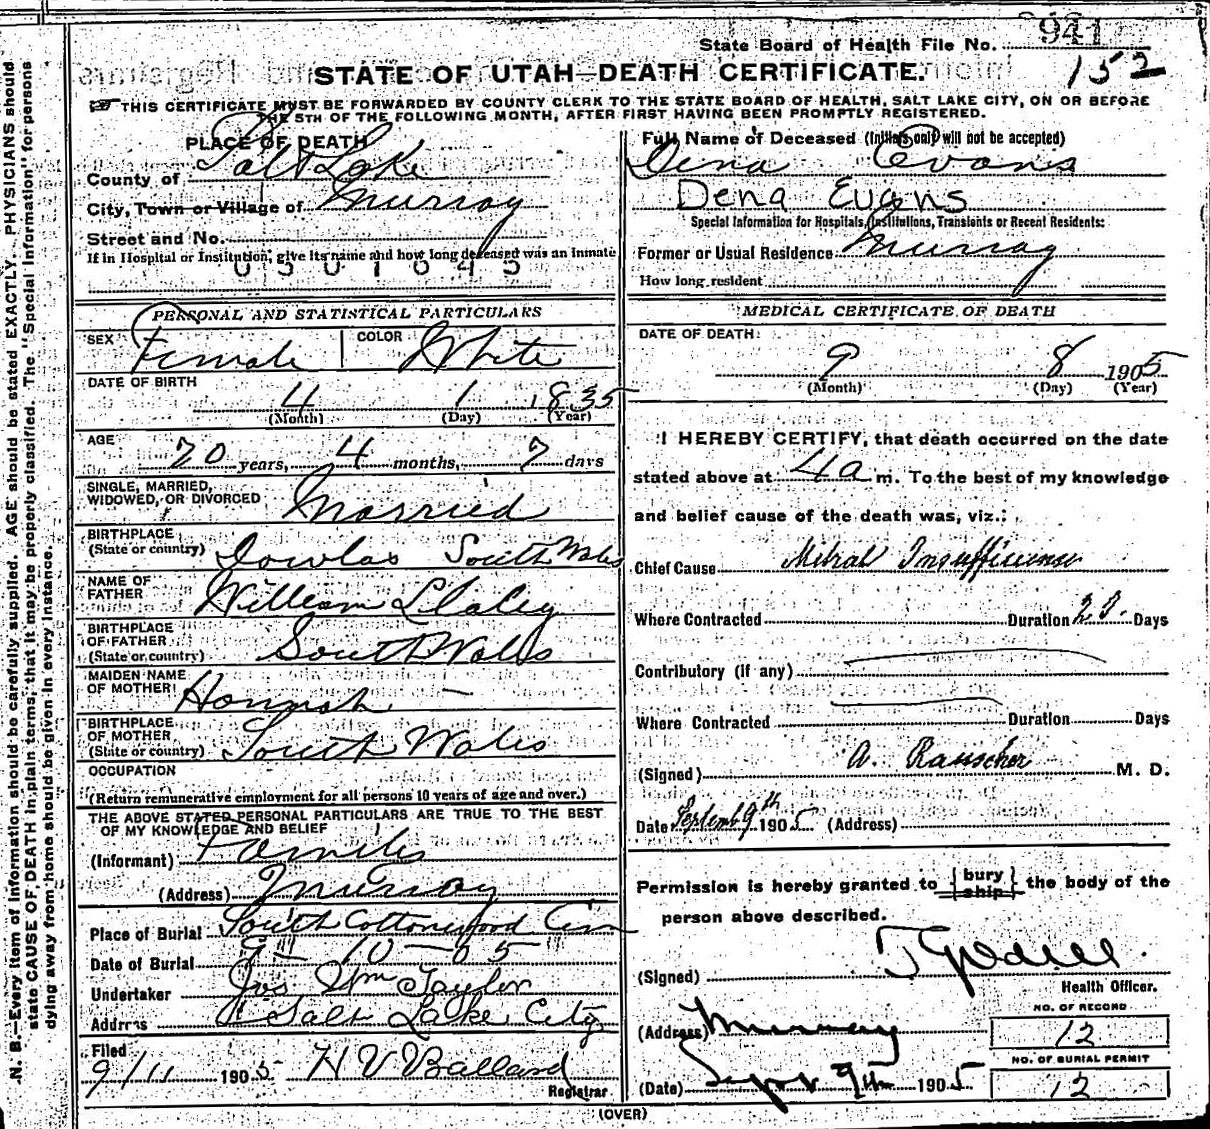 State Board of Health File No. 941
152
STATE OF UTAH—DEATH CERTIFICATE.
THIS CERTIFICATE MUST BE FORWARDED BY COUNTY CLERK TO THE STATE BOARD OF HEALTH, SALT LAKE CITY, ON OR BEFORE
THE 5TH OF THE FOLLOWING MONTH, AFTER FIRST HAVING BEEN PROMPTLY REGISTERED.
PLACE OF DEATH
County of Salt Lake
City, Town or Village of Murray
Street and No.
If in Hospital or Institution, give its name and how long deceased was an inmate
0301045
PERSONAL AND STATISTICAL PARTICULARS
SEX Female COLOR White
DATE OF BIRTH
4 1 1835
(Month) (Day) (Year)
AGE
70 years, 4 months, 7 days
SINGLE, MARRIED,
WIDOWED, OR DIVORCED Married
BIRTHPLACE
(State or country) Dowlas South Wales
NAME OF
FATHER William
BIRTHPLACE
OF FATHER
(State or country) South Wales
MAIDEN NAME
OF MOTHER Hannah —
BIRTHPLACE
OF MOTHER
(State or country) South Wales
OCCUPATION
(Return remunerative employment for all persons 10 years of age and over.)
THE ABOVE STATED PERSONAL PARTICULARS ARE TRUE TO THE BEST
OF MY KNOWLEDGE AND BELIEF
(Informant)
(Address) Murray
Place of Burial South Cottonwood Cem
Date of Burial 9 — 10 — 05
Undertaker Jos Wm Taylor
Address Salt Lake City
Filed
9/11 1905 H V Ballard
Registrar
Full Name of Deceased (Initials only will not be accepted)
Dena Evans
Dena Evans
Special Information for Hospitals, Institutions, Transients or Recent Residents:
Former or Usual Residence Murray
How long resident
MEDICAL CERTIFICATE OF DEATH
DATE OF DEATH:
9 8 1905
(Month) (Day) (Year)
I HEREBY CERTIFY, that death occurred on the date
stated above at 4a m. To the best of my knowledge
and belief cause of the death was, viz.:
Chief Cause Mitral Insufficiency
Where Contracted Duration Days
Contributory (if any)
Where Contracted Duration Days
(Signed) A. Rauscher M. D.
Date Septemb 9th 1905 (Address)
Permission is hereby granted to bury ship the body of the
person above described.
(Signed)
Health Officer.
(Address) Murray
(Date) Sept 9th 1905
NO. OF RECORD
12
NO. OF BURIAL PERMIT
12
(OVER)
N. B.—Every item of information should be carefully supplied. AGE should be stated EXACTLY. PHYSICIANS should
state CAUSE OF DEATH in plain terms, that it may be properly classified. The "Special Information" for persons
dying away from home should be given in every instance.